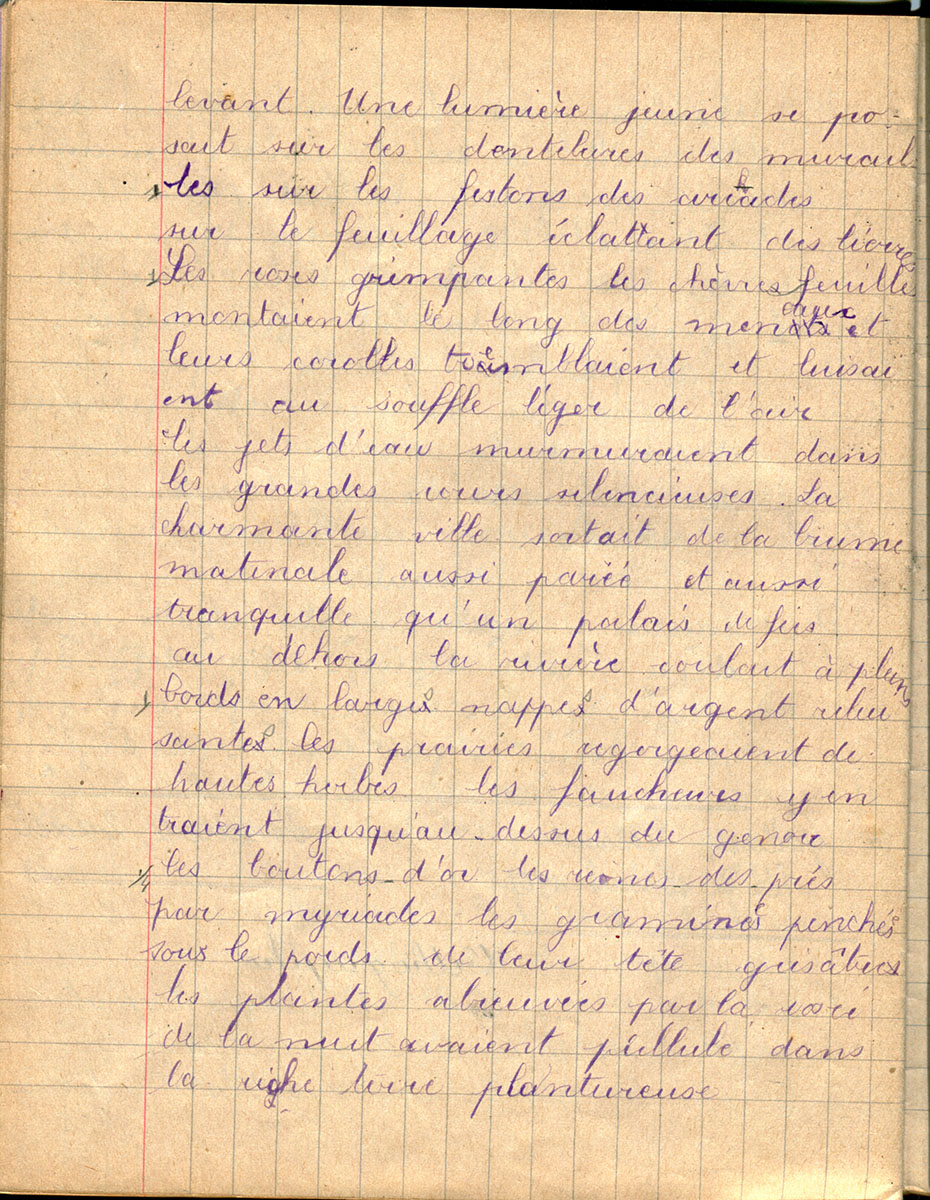 levant. Une lumière jeune se po-
sait sur les dentelures des murail
les sur les festons des arcades
sur le feuillage éclattant des lierres
Les roses grimpantes les chèvres feuilles
montaient le long des meneaux et
leurs corolles tremblaient et luisai
ent au souffle léger de l'air
les jets d'eau murmuraient dans
les grandes cours silencieuses. La
charmante ville sortait de la brume
matinale aussi parée et aussi
tranquille qu'un palais de fées
au déhors la rivière coulait à pleins
bords en larges nappes d'argent relui
santes. les prairies regorgeaient de
hautes herbes les faucheurs y en
traient jusqu'au-dessus du genou
les boutons-d'or les reines-des-prés
par myriades les graminés penchés
sous le poids de leur tête grisâtres
les plantes abreuvées par la rosée
de la nuit avaient pullulé dans
la riche terre plantureuse